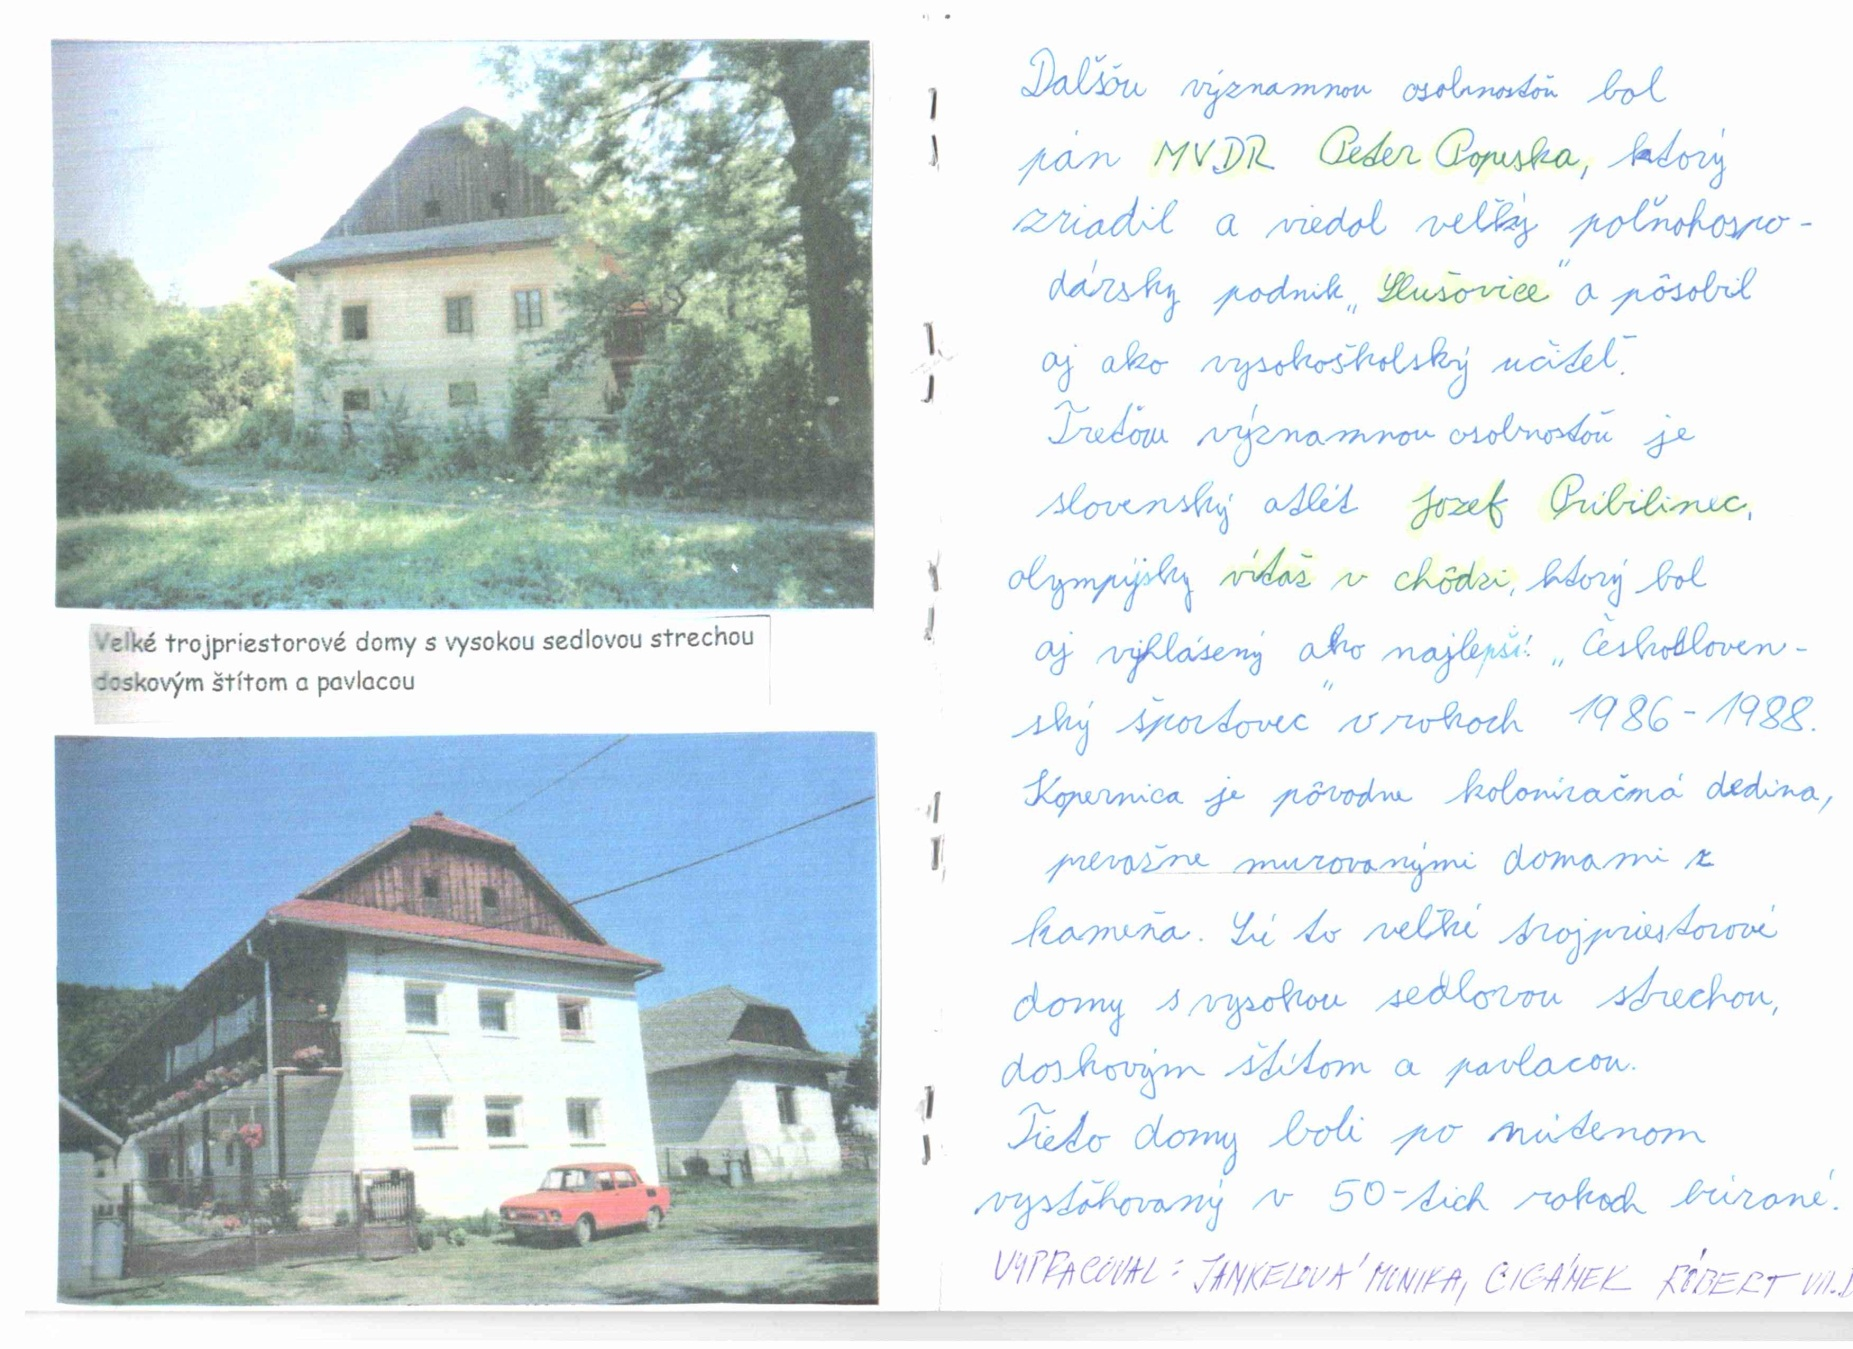 Veľké trojpriestorové domy s vysokou sedlovou strechou
doskovým štítom a pavlacou
Ďalšou významnou osobnosťou bol
pán MVDR Peter Popuska, ktorý
zriadil a viedol veľký poľnohospo-
dársky podnik „Slušovice" a pôsobil
aj ako vysokoškolský učiteľ.
Treťou významnou osobnosťou je
slovenský atlét Jozef Pribilinec,
olympijský víťaš v chôdzi, ktorý bol
aj vyhlásený ako najlepší: „Českosloven-
ský športovec" v rokoch 1986-1988.
Kopernica je pôvodne kolonizačná dedina,
prevašne murovanými domami z
kameňa. Sú to veľké trojpriestorové
domy s vysokou sedlovou strechou,
doskovým štítom a pavlacou.
Tieto domy boli po nútenom
vysťahovaný v 50-tich rokoch búrané.
VYPRACOVAL: JANKELOVÁ MONIKA, CIGÁNEK RÓBERT VII.D